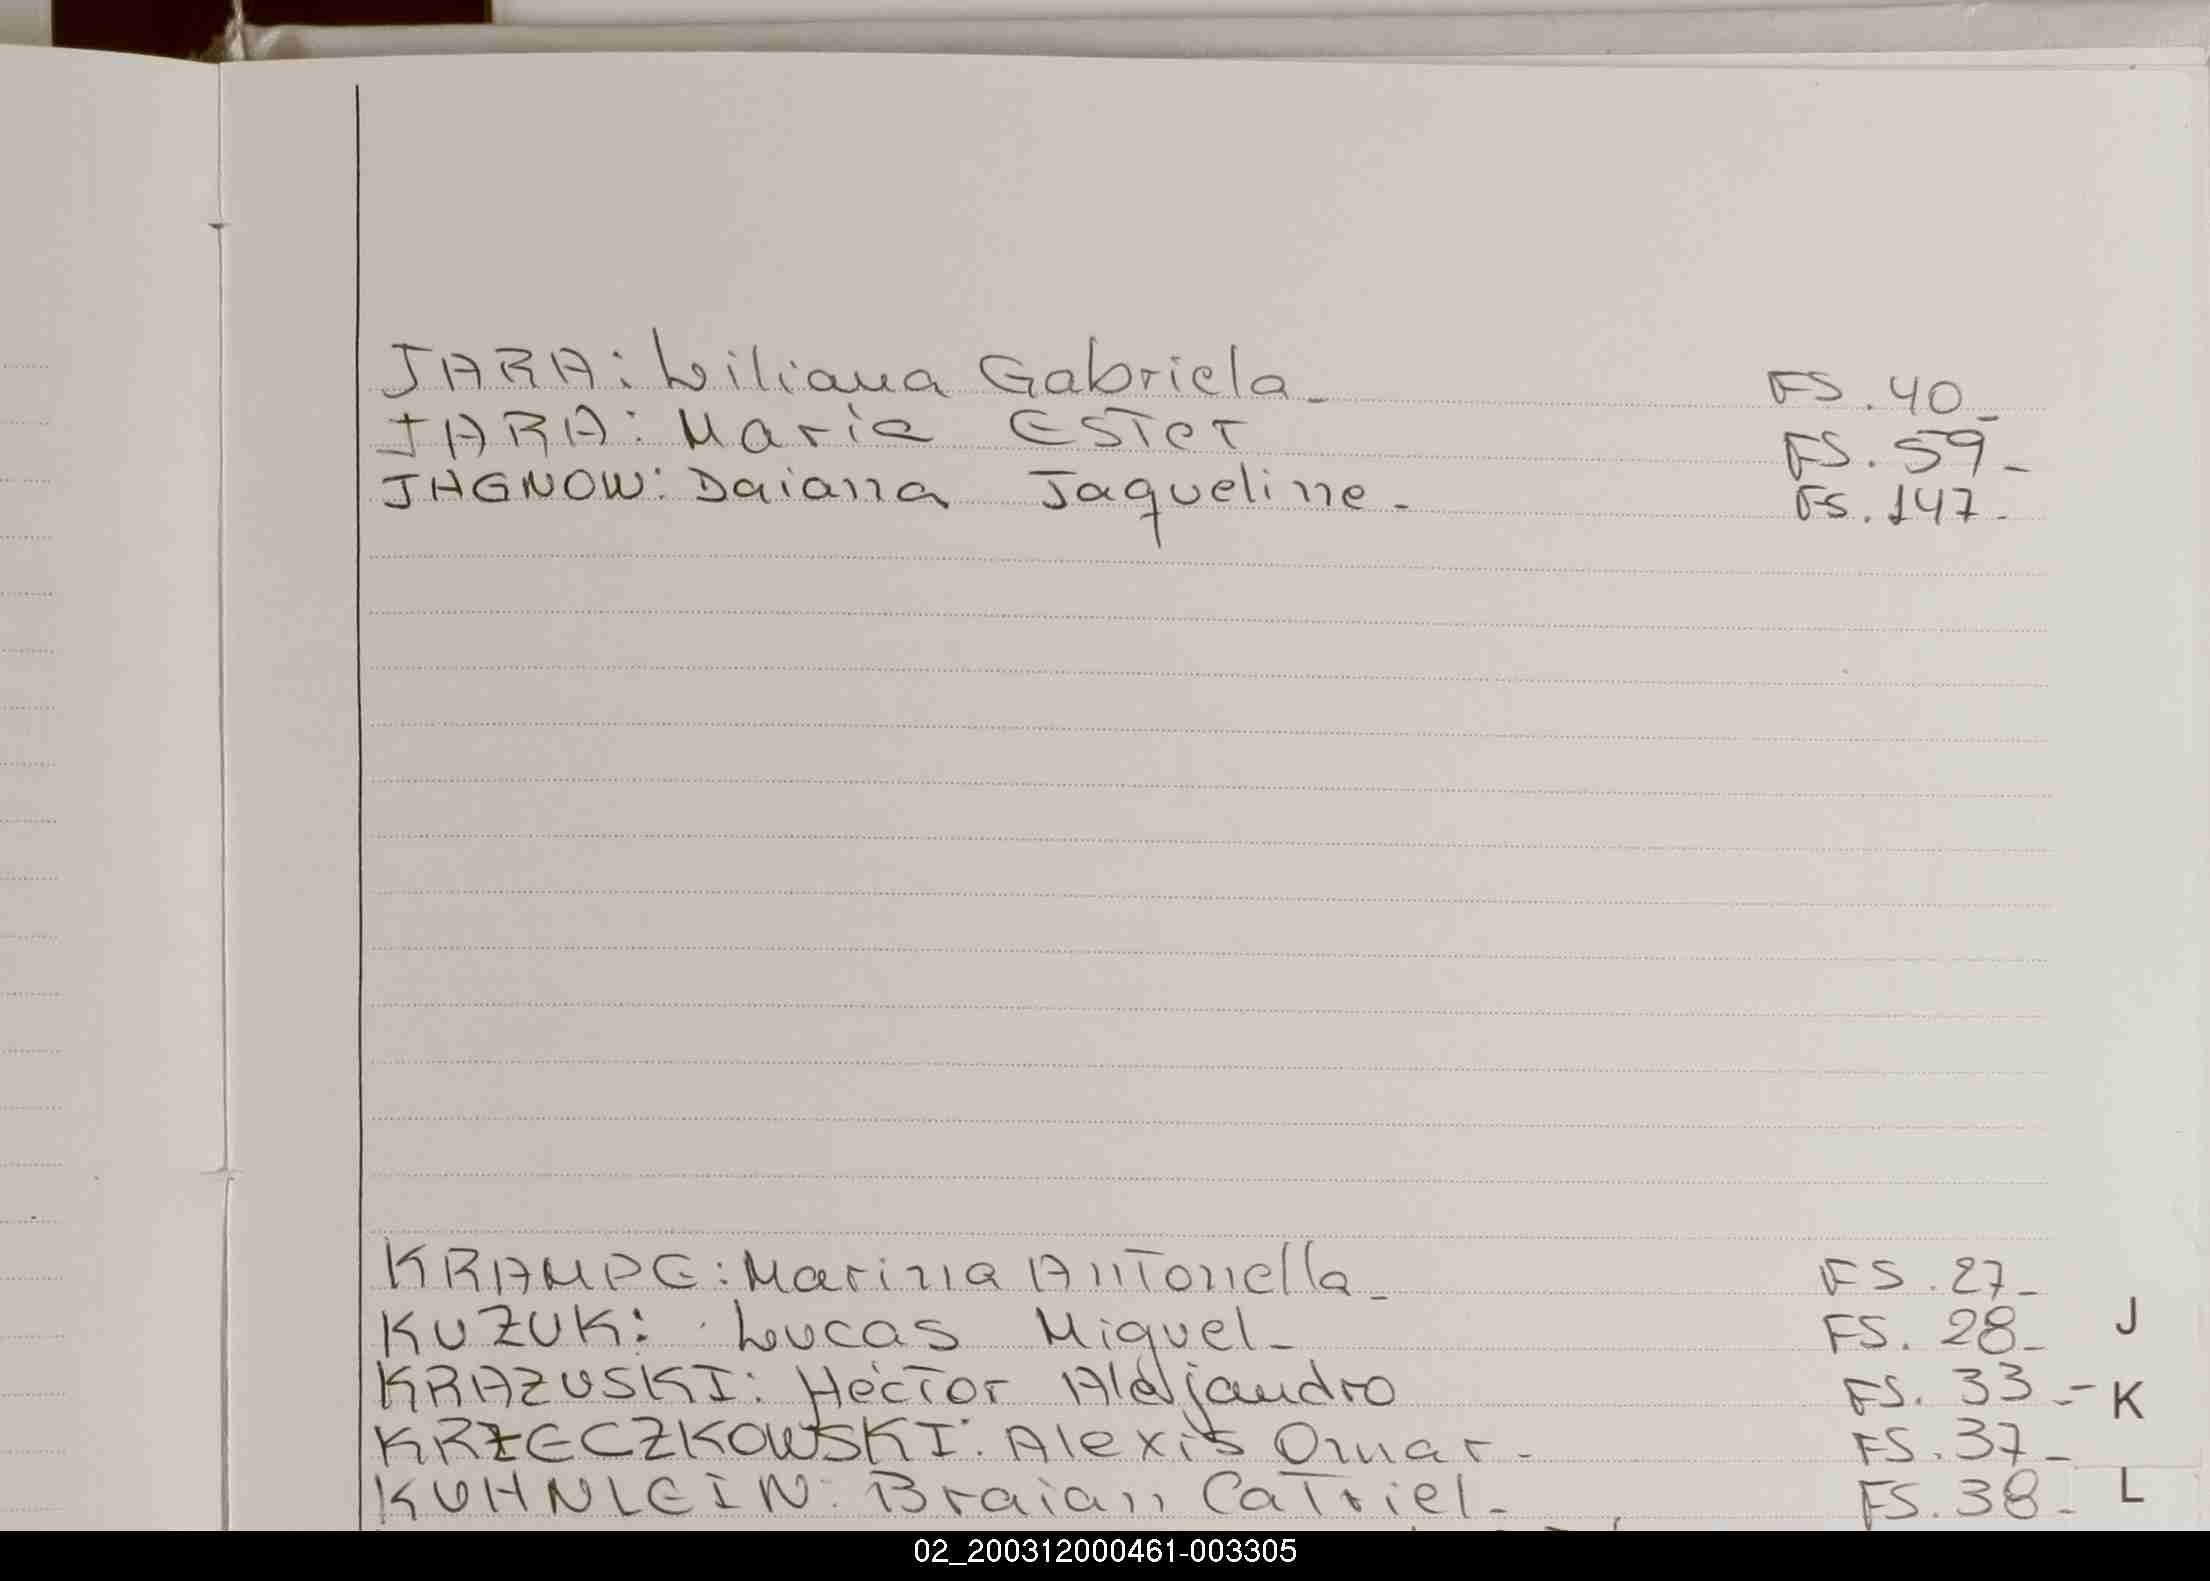 JARA: Liliana Gabriela_ FS. 40_
JARA: Maria ESTER FS. 59_
JAGNOW: Daiana Jaqueline. FS. 147.
KRAMPE: Marina Antonella_ FS. 27_
KUZUK: Lucas Miguel_ FS. 28_
J
KRAZUSKI: Héctor Alejandro FS. 33_
K
KRZECZKOWSKI: Alexis Omar. FS. 37_
KUHNLEIN: Braian Catriel_ FS. 38_
L
02_200312000461-003305